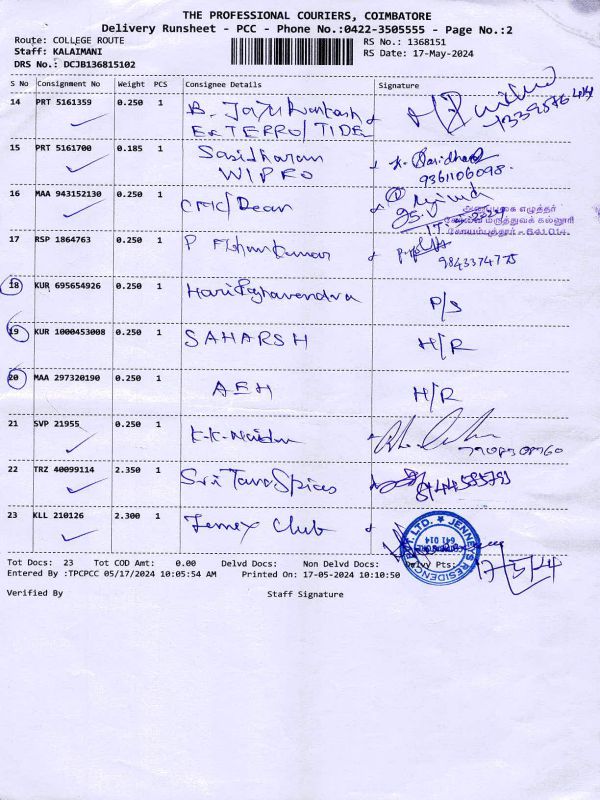 THE PROFESSIONAL COURIERS, COIMBATORE
Delivery Runsheet - PCC - Phone No.:0422-3505555 - Page No.:2
Route: COLLEGE ROUTE
Staff: KALAIMANI
DRS No.: DCJB136815102
RS No.: 1368151
RS Date: 17-May-2024
S No Consignment No Weight PCS Consignee Details Signature
14 PRT 5161359 0.250 1
EXTERRO/TIDEL
15 PRT 5161700 0.185 1 Sasidharan
WIPRO 9361106098
16 MAA 943152130 0.250 1 CMC/Dean
17 RSP 1864763 0.250 1 P 9843374775
18 KUR 695654926 0.250 1 Hari Raghavendra P/S
19 KUR 1000453008 0.250 1 SAHARSH H/R
20 MAA 297320190 0.250 1 AEH H/R
21 SVP 21955 0.250 1 K.K. Naidu
22 TRZ 40099114 2.350 1 Sri Tara Spices
23 KLL 210126 2.300 1 Club
JENNEYS RESIDENCE PVT. LTD. 641 014
Tot Docs: 23 Tot COD Amt: 0.00 Delvd Docs: Non Delvd Docs: Delvy Pts:
Entered By :TPCPCC 05/17/2024 10:05:54 AM Printed On: 17-05-2024 10:10:50
17/5/24
Verified By Staff Signature